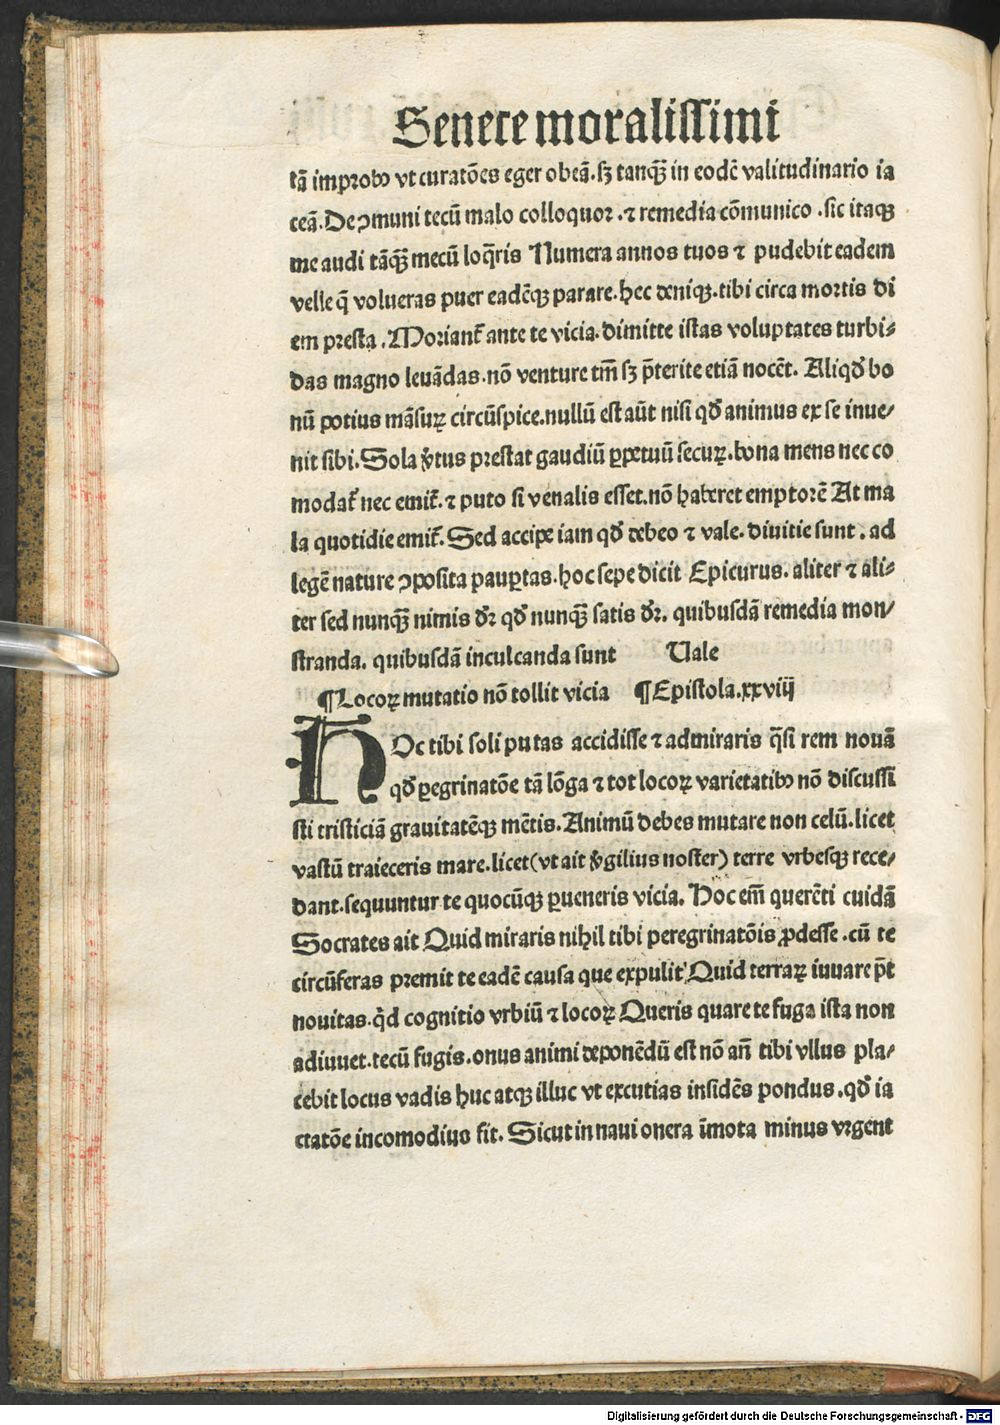 Senece moralissimi
tā improbꝰ vt curatōes eger obeā. sꝫ tanqꝫ̄ in eodē valitudinario ia
ceā. De ꝯmuni tecū malo colloquor . ⁊ remedia cōmunico . sic itaqꝫ
me audi tāqꝫ̄ mecū loq̄ris Numera annos tuos ⁊ pudebit eadem
velle q̄ volueras puer eadēqꝫ parare. hec deniqꝫ. tibi circa mortis di
em presta . Moriant᷑ ante te vicia. dimitte istas voluptates turbi⸗
das magno leuādas. nō venture tm̄ sꝫ p̄terite etiā nocēt. Aliqd̓ bo
nū potius māsurꝝ circūspice. nullū est aūt nisi qd̓ animus ex se inue⸗
nit sibi. Sola v̓tus prestat gaudiū ꝑpetuū securꝝ. bona mens nec co
modat᷑ nec emit᷑. ⁊ puto si venalis esset. nō haberet emptorē At ma
la quotidie emit᷑. Sed accipe iam qd̓ debeo ⁊ vale. diuitie sunt . ad
legē nature ꝯposita pauꝑtas. hoc sepe dicit Epicurus. aliter ⁊ ali⸗
ter sed nunqꝫ̄ nimis dr̄ qd̓ nunqꝫ̄ satis dr̄. quibusdā remedia mon⸗
stranda. quibusdā inculcanda sunt Uale
¶Locoꝝ mutatio nō tollit vicia ¶Epistola.xxviij
HOc tibi soli putas accidisse ⁊ admiraris q̄si rem nouā
qd̓ ꝑegrinatōe tā lōga ⁊ tot locoꝝ varietatibꝰ nō discussi
sti tristiciā grauitatēqꝫ mētis. Animū debes mutare non celū. licet
vastū traieceris mare. licet (vt ait v̓gilius noster) terre vrbesqꝫ rece⸗
dant. sequuntur te quocūqꝫ ꝑueneris vicia. Hoc em̄ querēti cuidā
Socrates ait Quid miraris nihil tibi peregrinatōis ꝓdesse . cū te
circūferas premit te eadē causa que expulit Quid terraꝝ iuuare p̄t
nouitas. q̄d cognitio vrbiū ⁊ locoꝝ Queris quare te fuga ista non
adiuuet. tecū fugis. onus animi deponēdū est nō an̄ tibi vllus pla⸗
cebit locus vadis huc atqꝫ illuc vt excutias insidēs pondus. qd̓ ia
ctatōe incomodius fit. Sicut in naui onera īmota minus vrgent
Digitalisierung gefördert durch die Deutsche Forschungsgemeinschaft - DFG